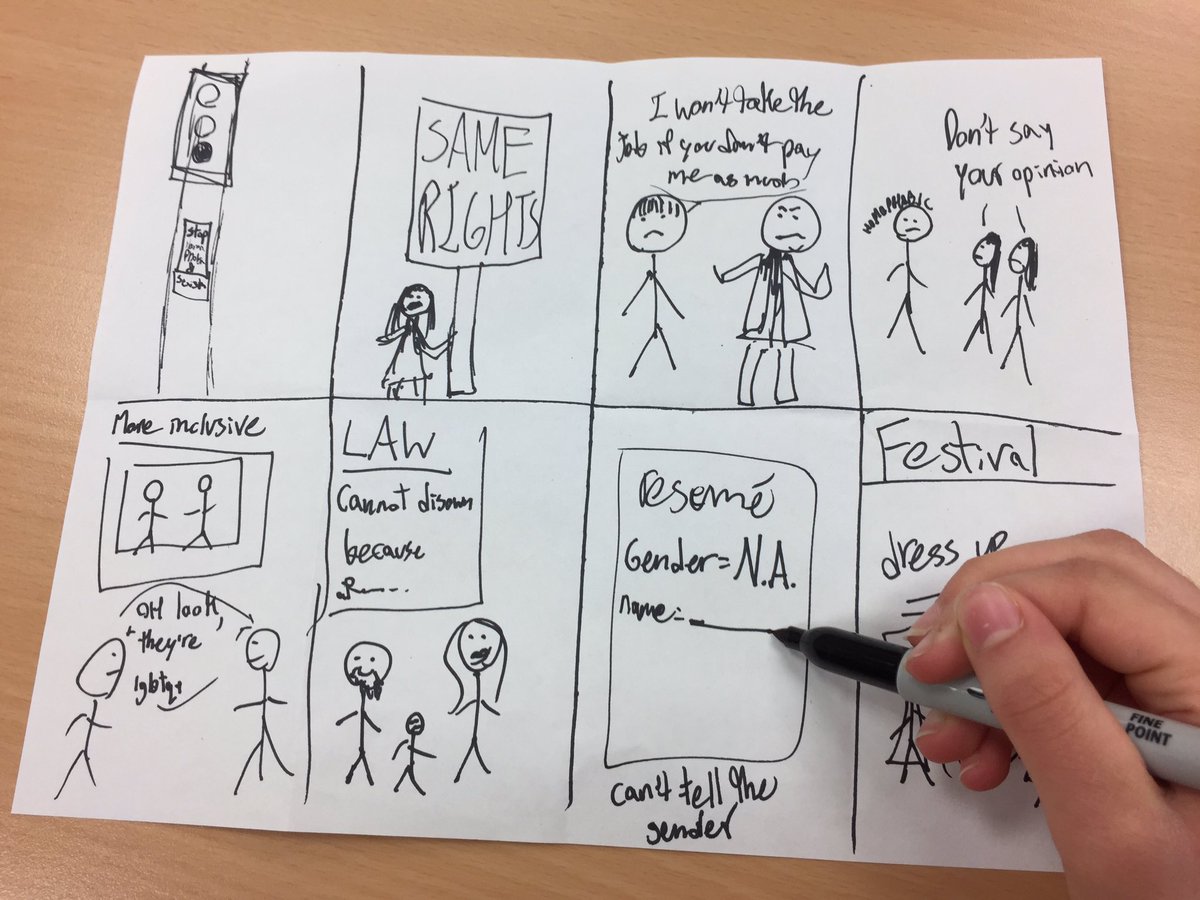 stop
SAME
RIGHTS
I won't take the
Job if you don't pay
me as much
HOMOPHOBIC
Don't say
your opinion
More inclusive
OH look,
they're
lgbtq+
LAW
Cannot disown
because
resomé
Gender = N.A.
name:
can't tell the
gender
Festival
dress up
FINE
POINT